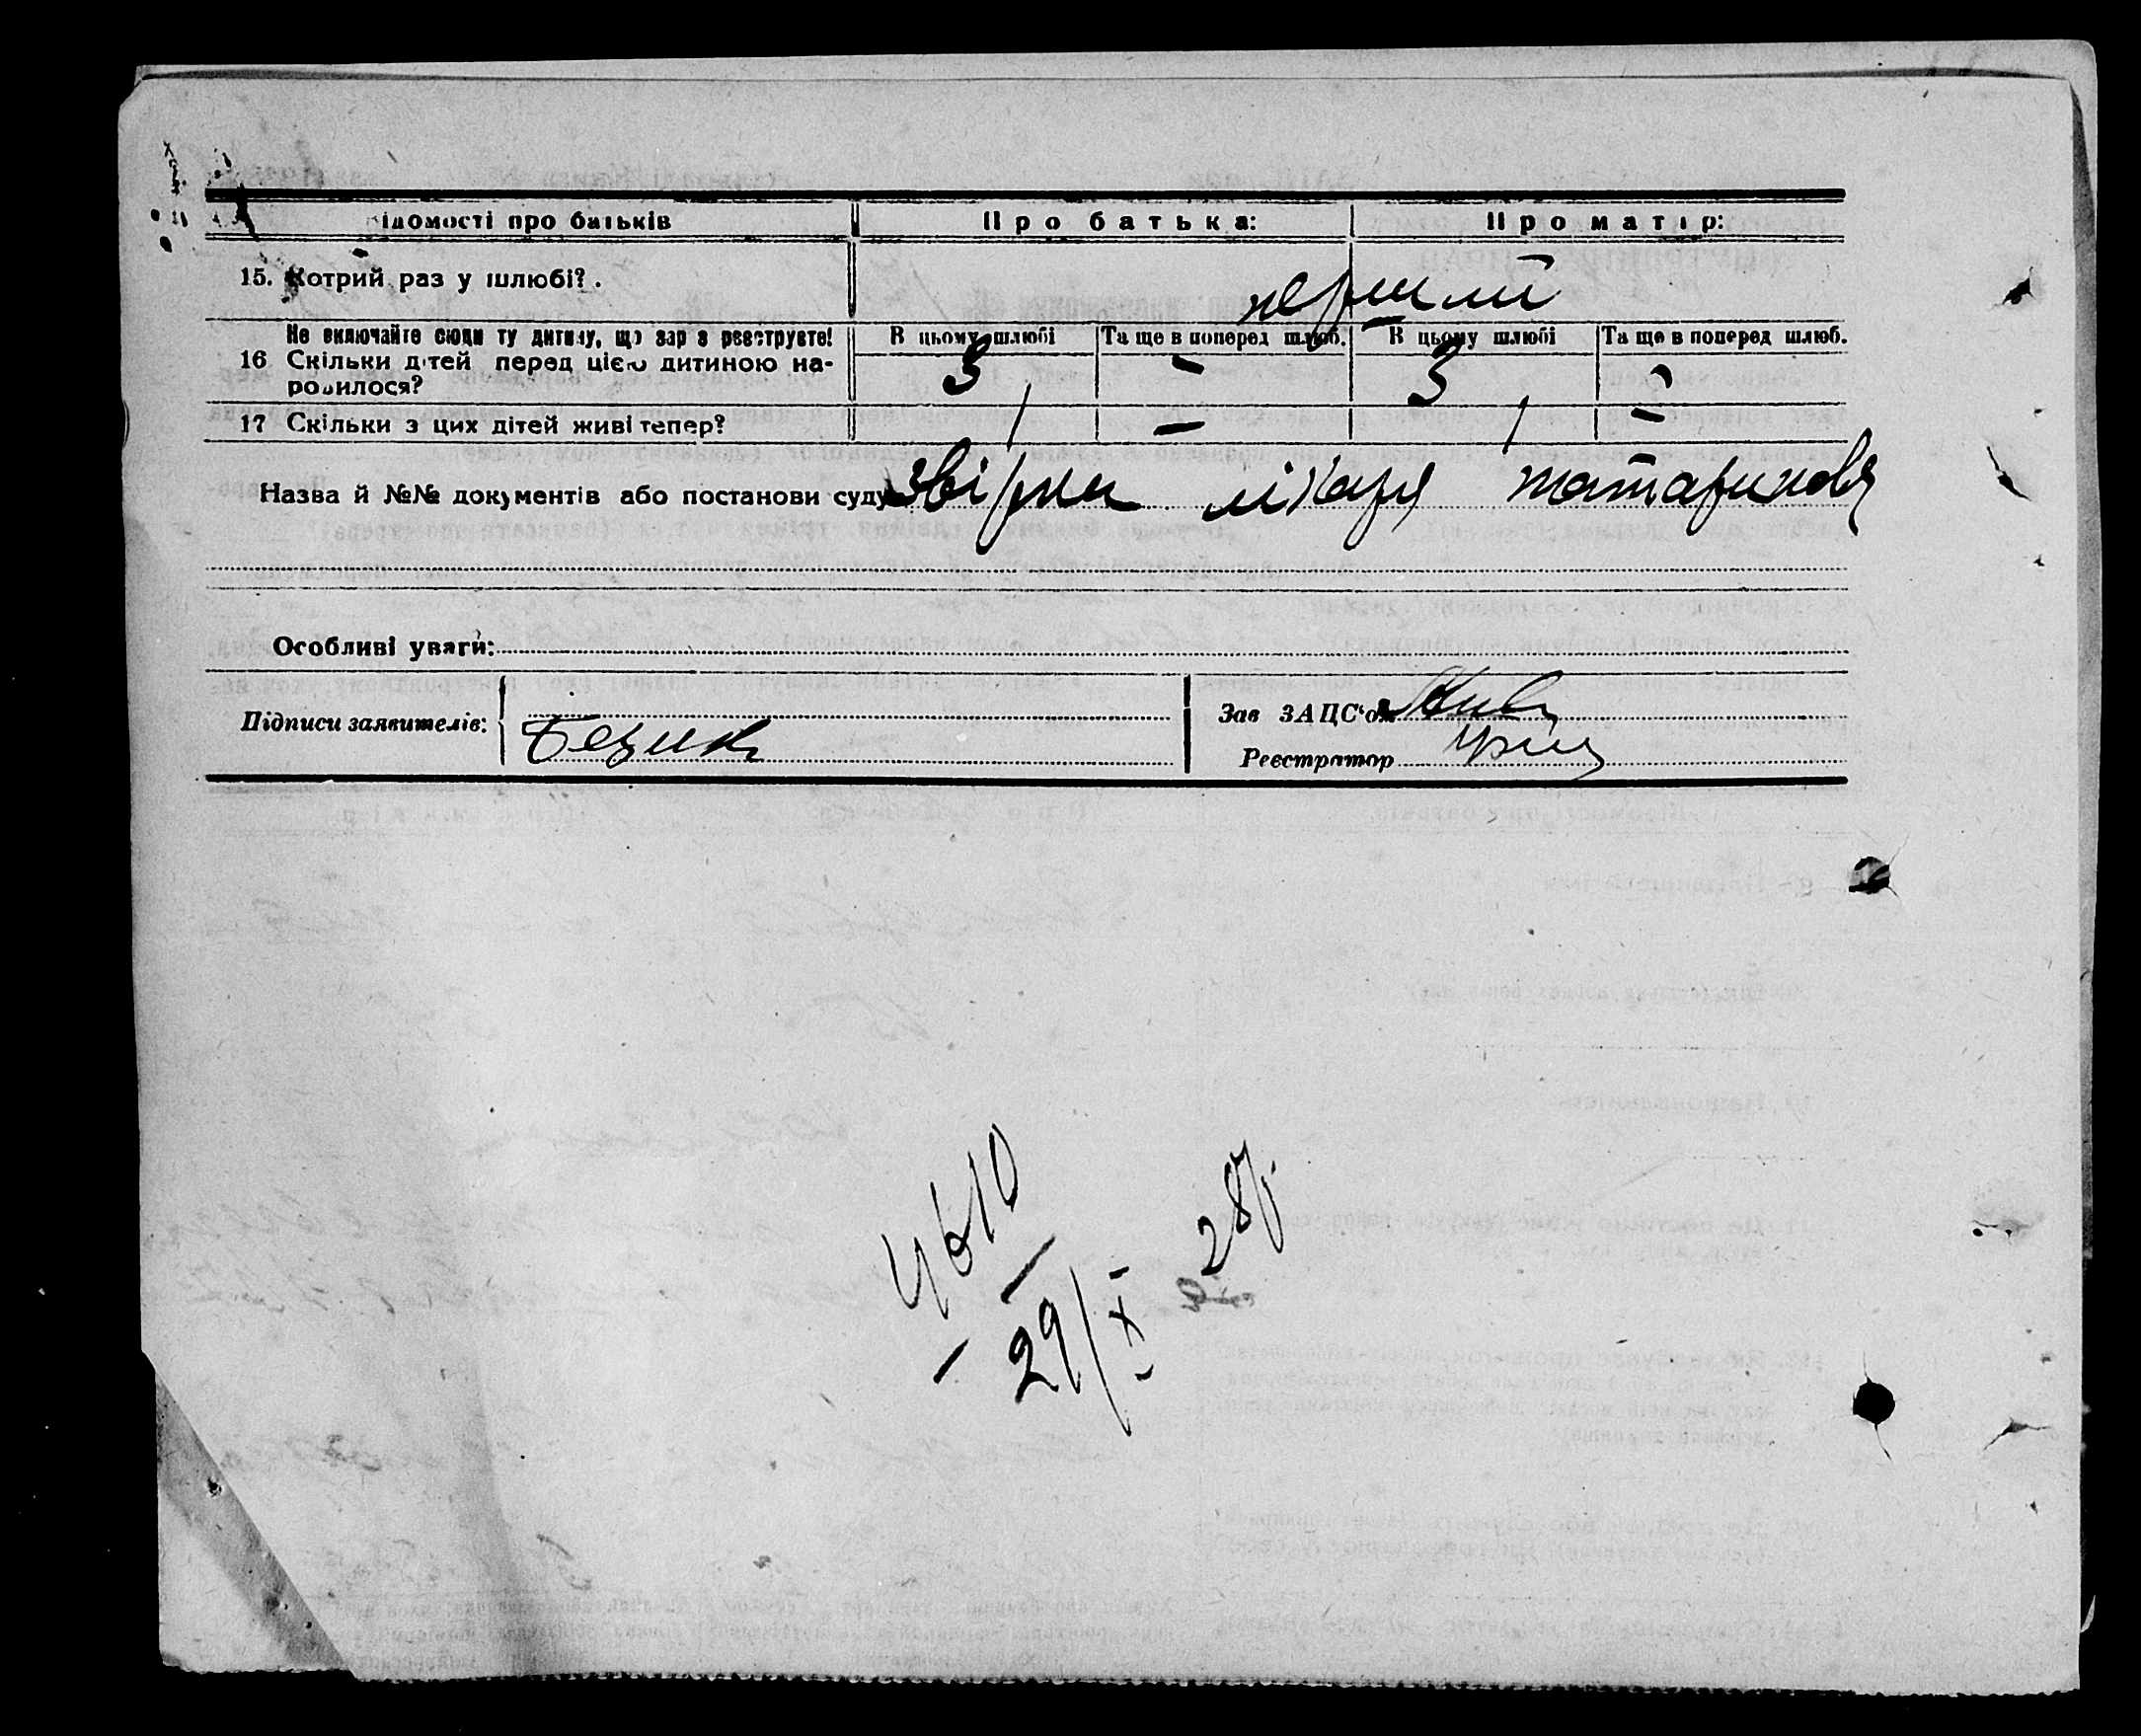 ідомості про батьків Про батька: Про матір:
15. Котрий раз у шлюбі? . перший
Не включайте сюди ту дитину, що зараз реєструєте! В цьому шлюбі Та ще в поперед шлюб. В цьому шлюбі Та ще в поперед шлюб.
16 Скільки дітей перед цією дитиною на-
родилося? 3 - 3 -
17 Скільки з цих дітей живі тепер? 1 - 1 -
Назва й №№ документів або постанови суду лікаря Татаринова
Особливі уваги:
Підписи заявителів: Зав ЗАЦС'ом
Реєстратор
4610
29/X 28р.